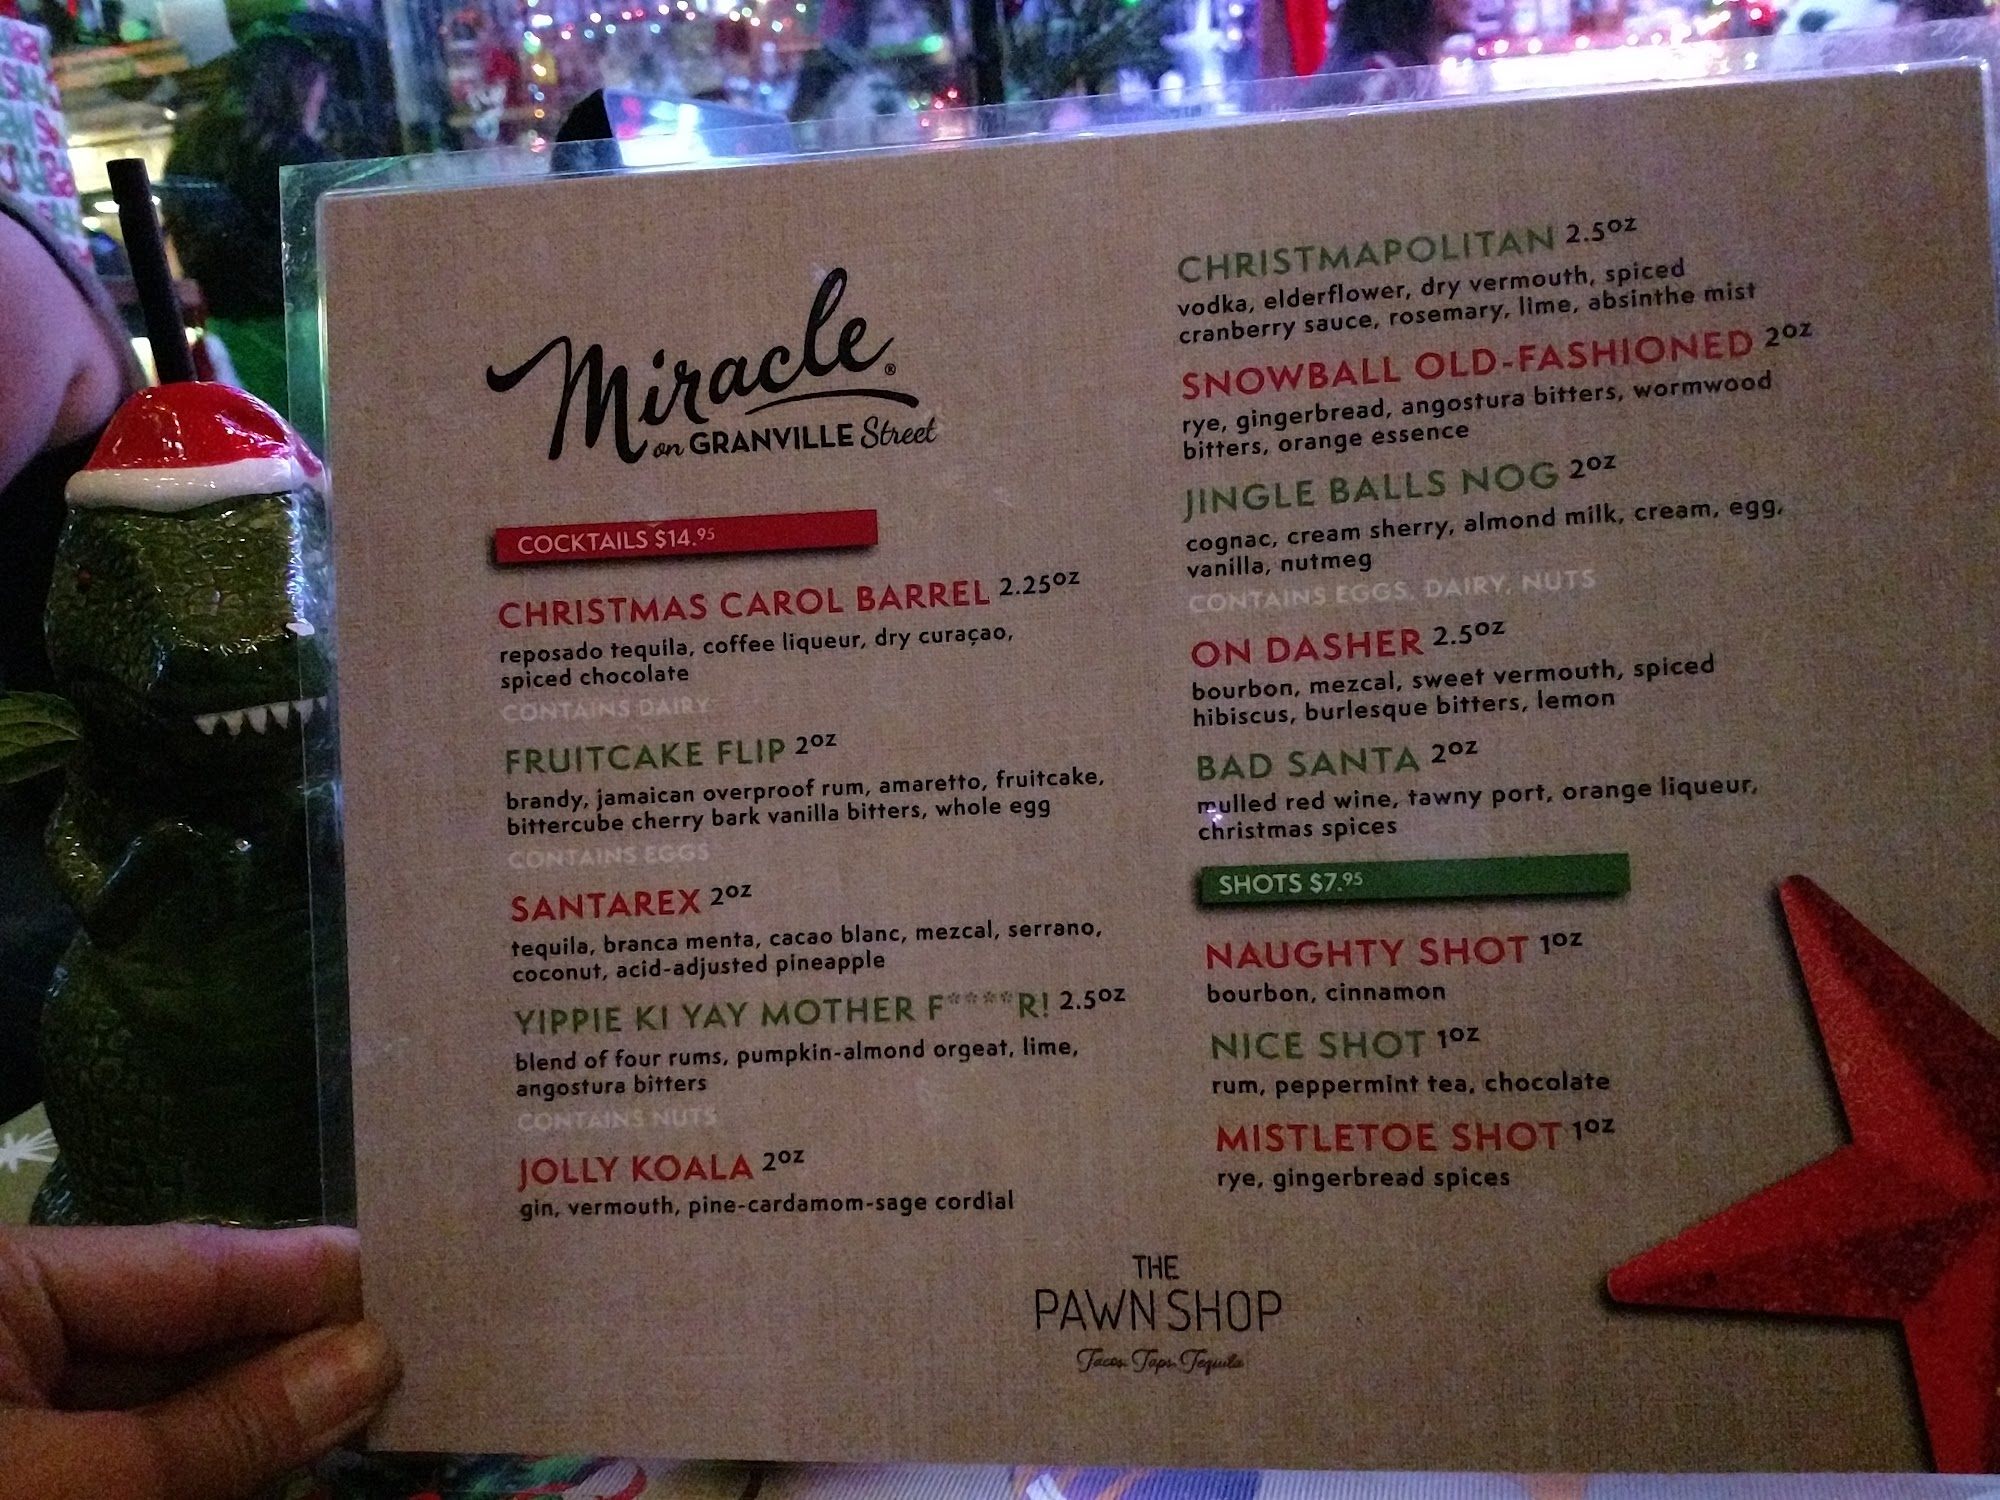 Miracle®
on GRANVILLE Street
COCKTAILS $14.95
CHRISTMAS CAROL BARREL 2.25oz
reposado tequila, coffee liqueur, dry curaçao,
spiced chocolate
CONTAINS DAIRY
FRUITCAKE FLIP 2oz
brandy, jamaican overproof rum, amaretto, fruitcake,
bittercube cherry bark vanilla bitters, whole egg
CONTAINS EGGS
SANTAREX 2oz
tequila, branca menta, cacao blanc, mezcal, serrano,
coconut, acid-adjusted pineapple
YIPPIE KI YAY MOTHER F****R! 2.5oz
blend of four rums, pumpkin-almond orgeat, lime,
angostura bitters
CONTAINS NUTS
JOLLY KOALA 2oz
gin, vermouth, pine-cardamom-sage cordial
CHRISTMAPOLITAN 2.5oz
vodka, elderflower, dry vermouth, spiced
cranberry sauce, rosemary, lime, absinthe mist
SNOWBALL OLD-FASHIONED 2oz
rye, gingerbread, angostura bitters, wormwood
bitters, orange essence
JINGLE BALLS NOG 2oz
cognac, cream sherry, almond milk, cream, egg,
vanilla, nutmeg
CONTAINS EGGS, DAIRY, NUTS
ON DASHER 2.5oz
bourbon, mezcal, sweet vermouth, spiced
hibiscus, burlesque bitters, lemon
BAD SANTA 2oz
mulled red wine, tawny port, orange liqueur,
christmas spices
SHOTS $7.95
NAUGHTY SHOT 1oz
bourbon, cinnamon
NICE SHOT 1oz
rum, peppermint tea, chocolate
MISTLETOE SHOT 1oz
rye, gingerbread spices
THE
PAWN SHOP
Tacos Taps Tequila